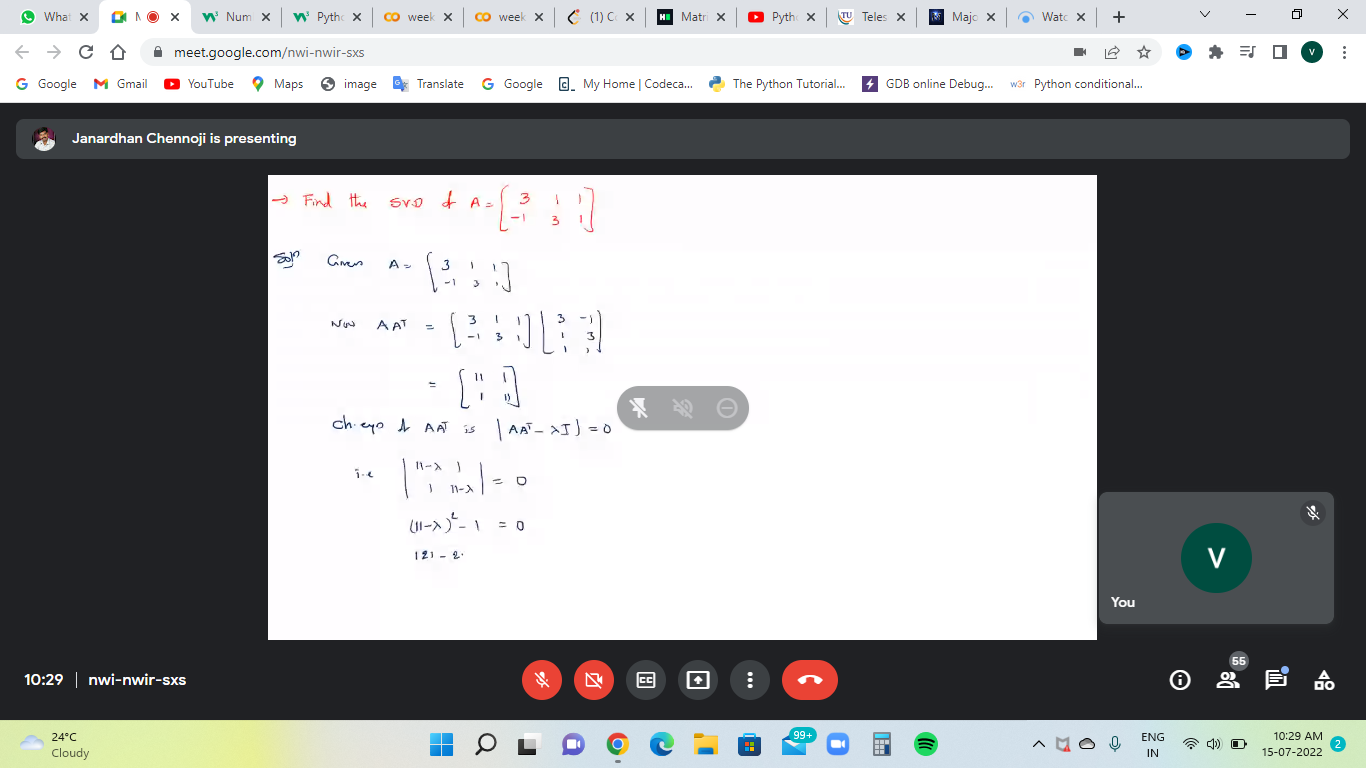 What
M
Num
Pyth
week
week
(1) C
Matri
Pyth
Teles
Majo
Watc
meet.google.com/nwi-nwir-sxs
V
Google
Gmail
YouTube
Maps
image
Translate
Google
My Home | Codeca...
The Python Tutorial...
GDB online Debug...
Python conditional...
Janardhan Chennoji is presenting
→ Find the S.V.D of A = [ 3 1 1
-1 3 1 ]
Soln Given A = [ 3 1 1
-1 3 1 ]
Now AAᵀ = [ 3 1 1 ] [ 3 -1
-1 3 1 ] [ 1 3
1 1 ]
= [ 11 1
1 11 ]
Ch. eqn of AAᵀ is |AAᵀ - λI| = 0
i.e | 11-λ 1 |
| 1 11-λ | = 0
(11-λ)² - 1 = 0
121 - 2
V
You
10:29 | nwi-nwir-sxs
55
24°C
Cloudy
99+
ENG
IN
10:29 AM
15-07-2022
2